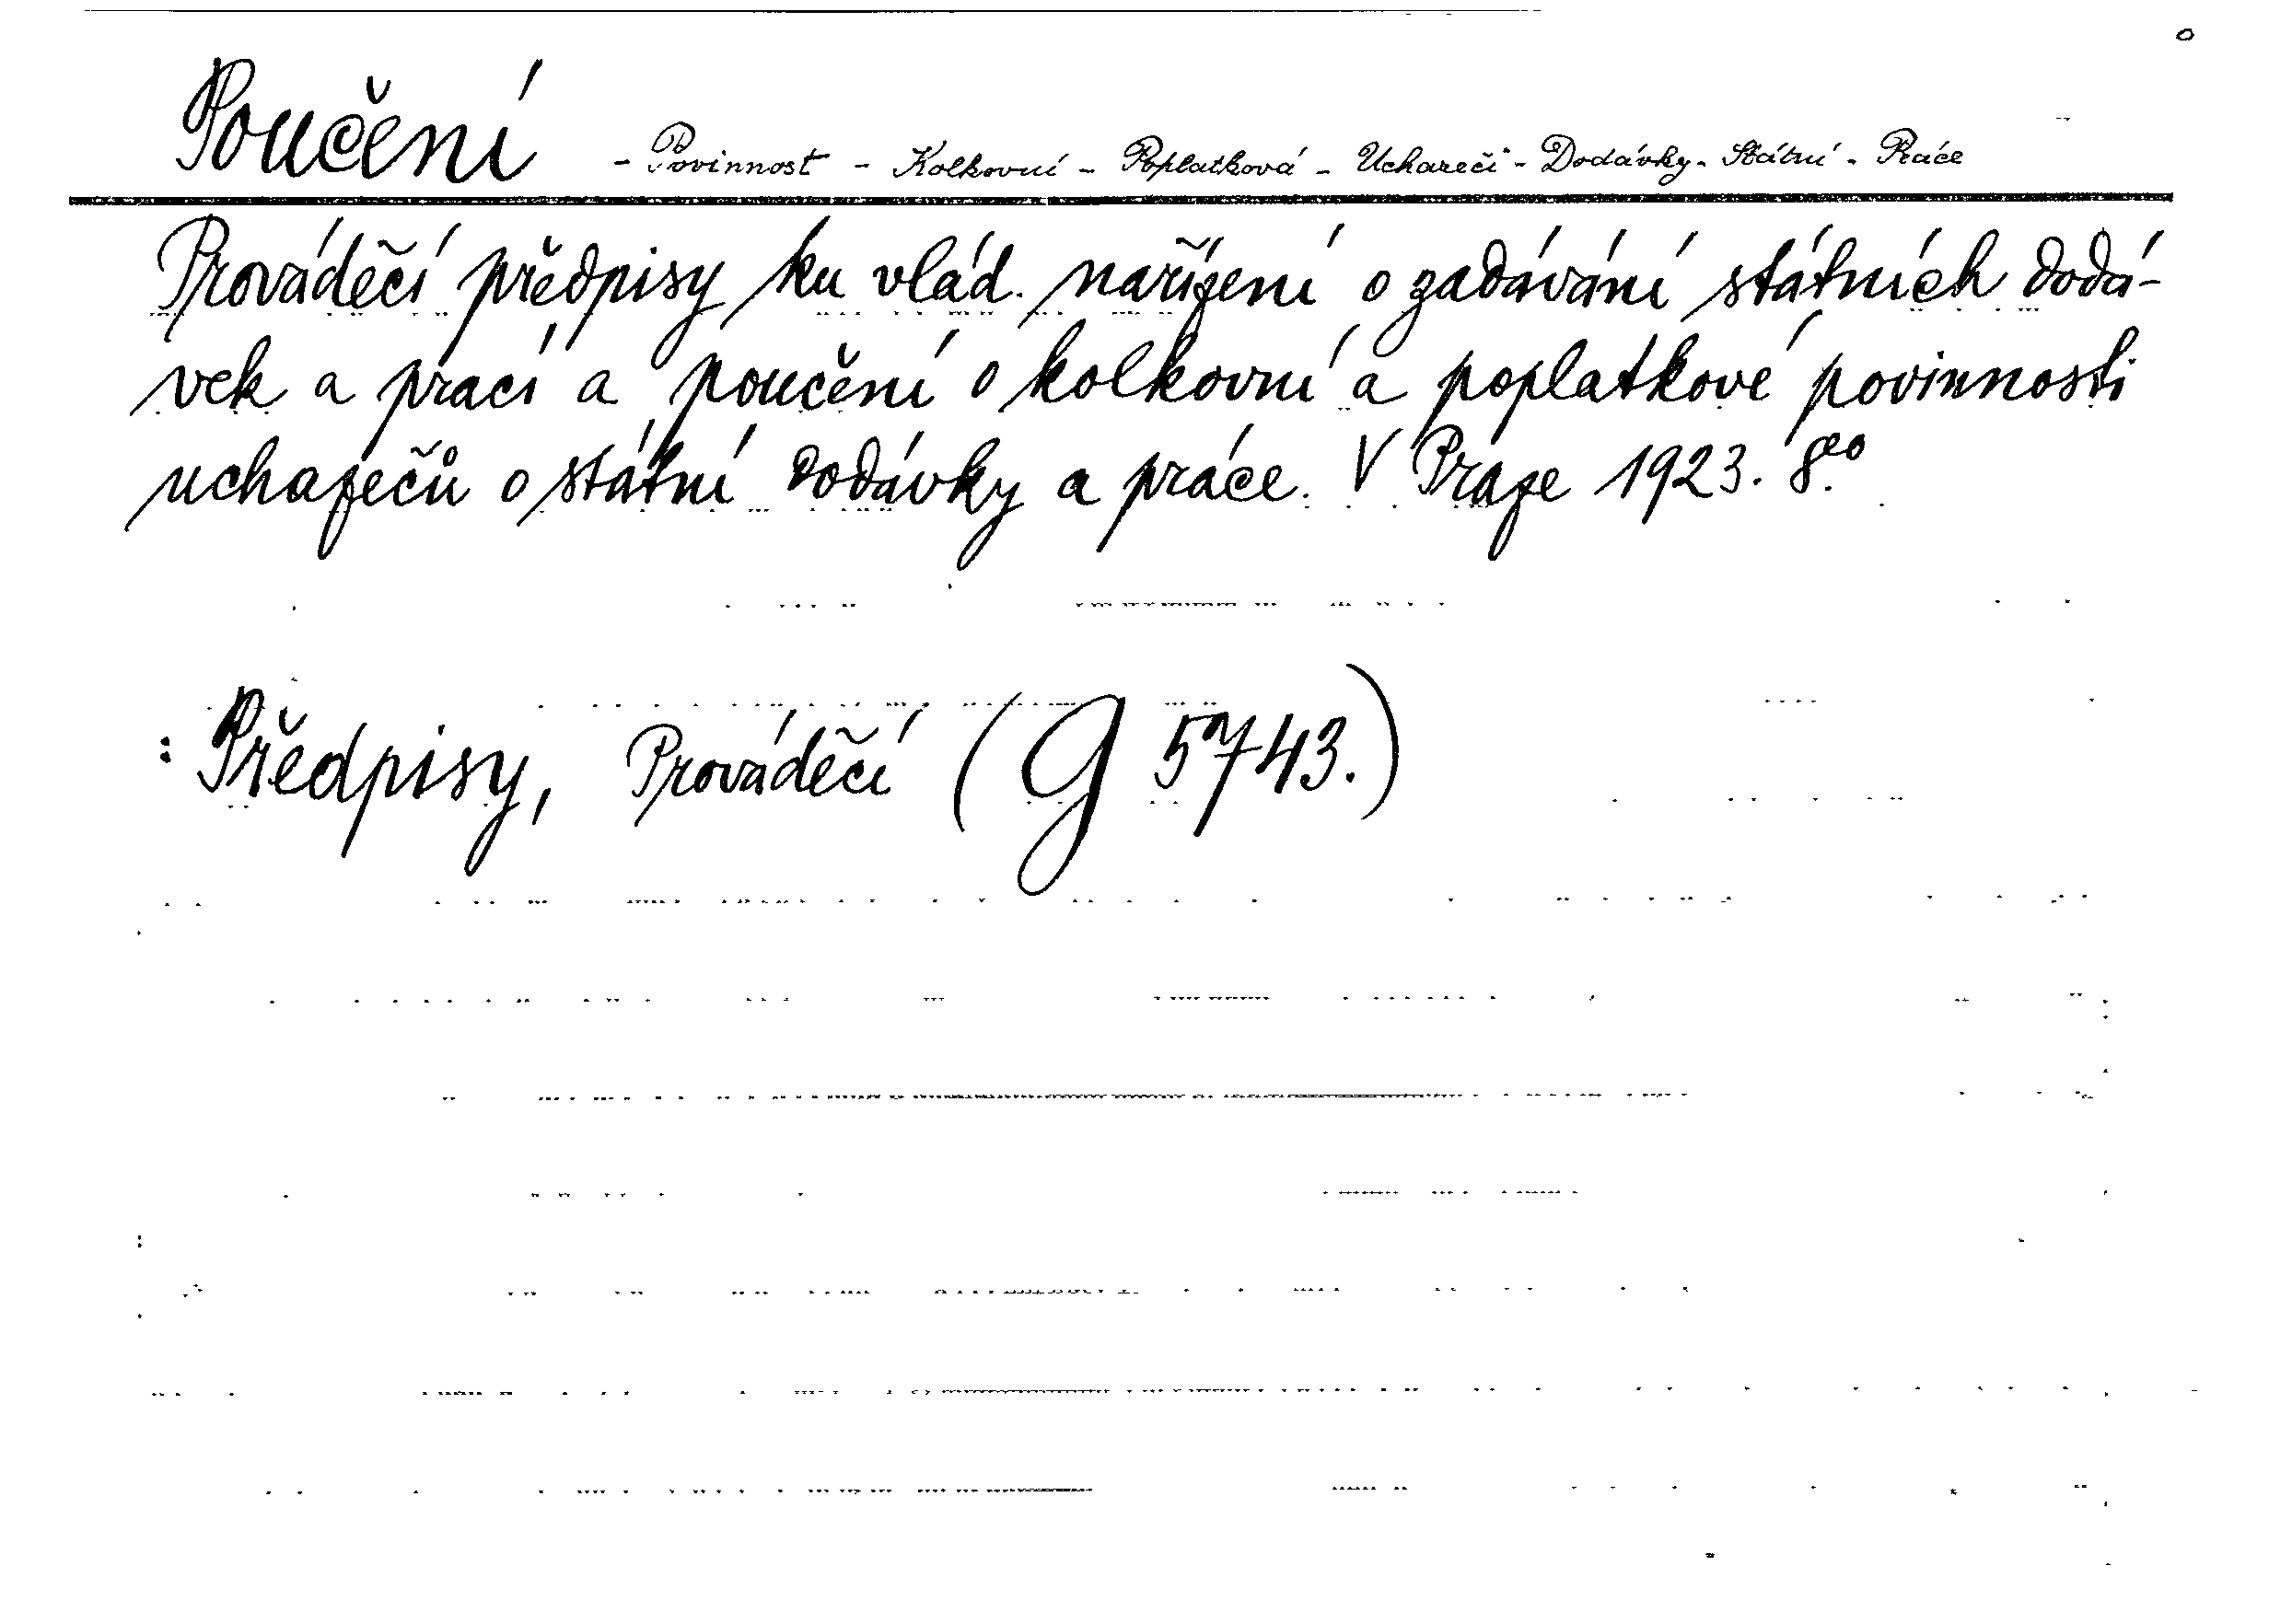 Poučení - Povinnost - Kolkovní - Poplatková - Uchazeči - Dodávky - Státní - Práce
Prováděčí předpisy ku vlád. nařízení o zadávání státních dodá-
vek a prací a poučení o kolkovní a poplatkové povinnosti
uchazečů o státní dodávky a práce. V Praze 1923. 8eo.
: Předpisy, Prováděčí (G 5743.)